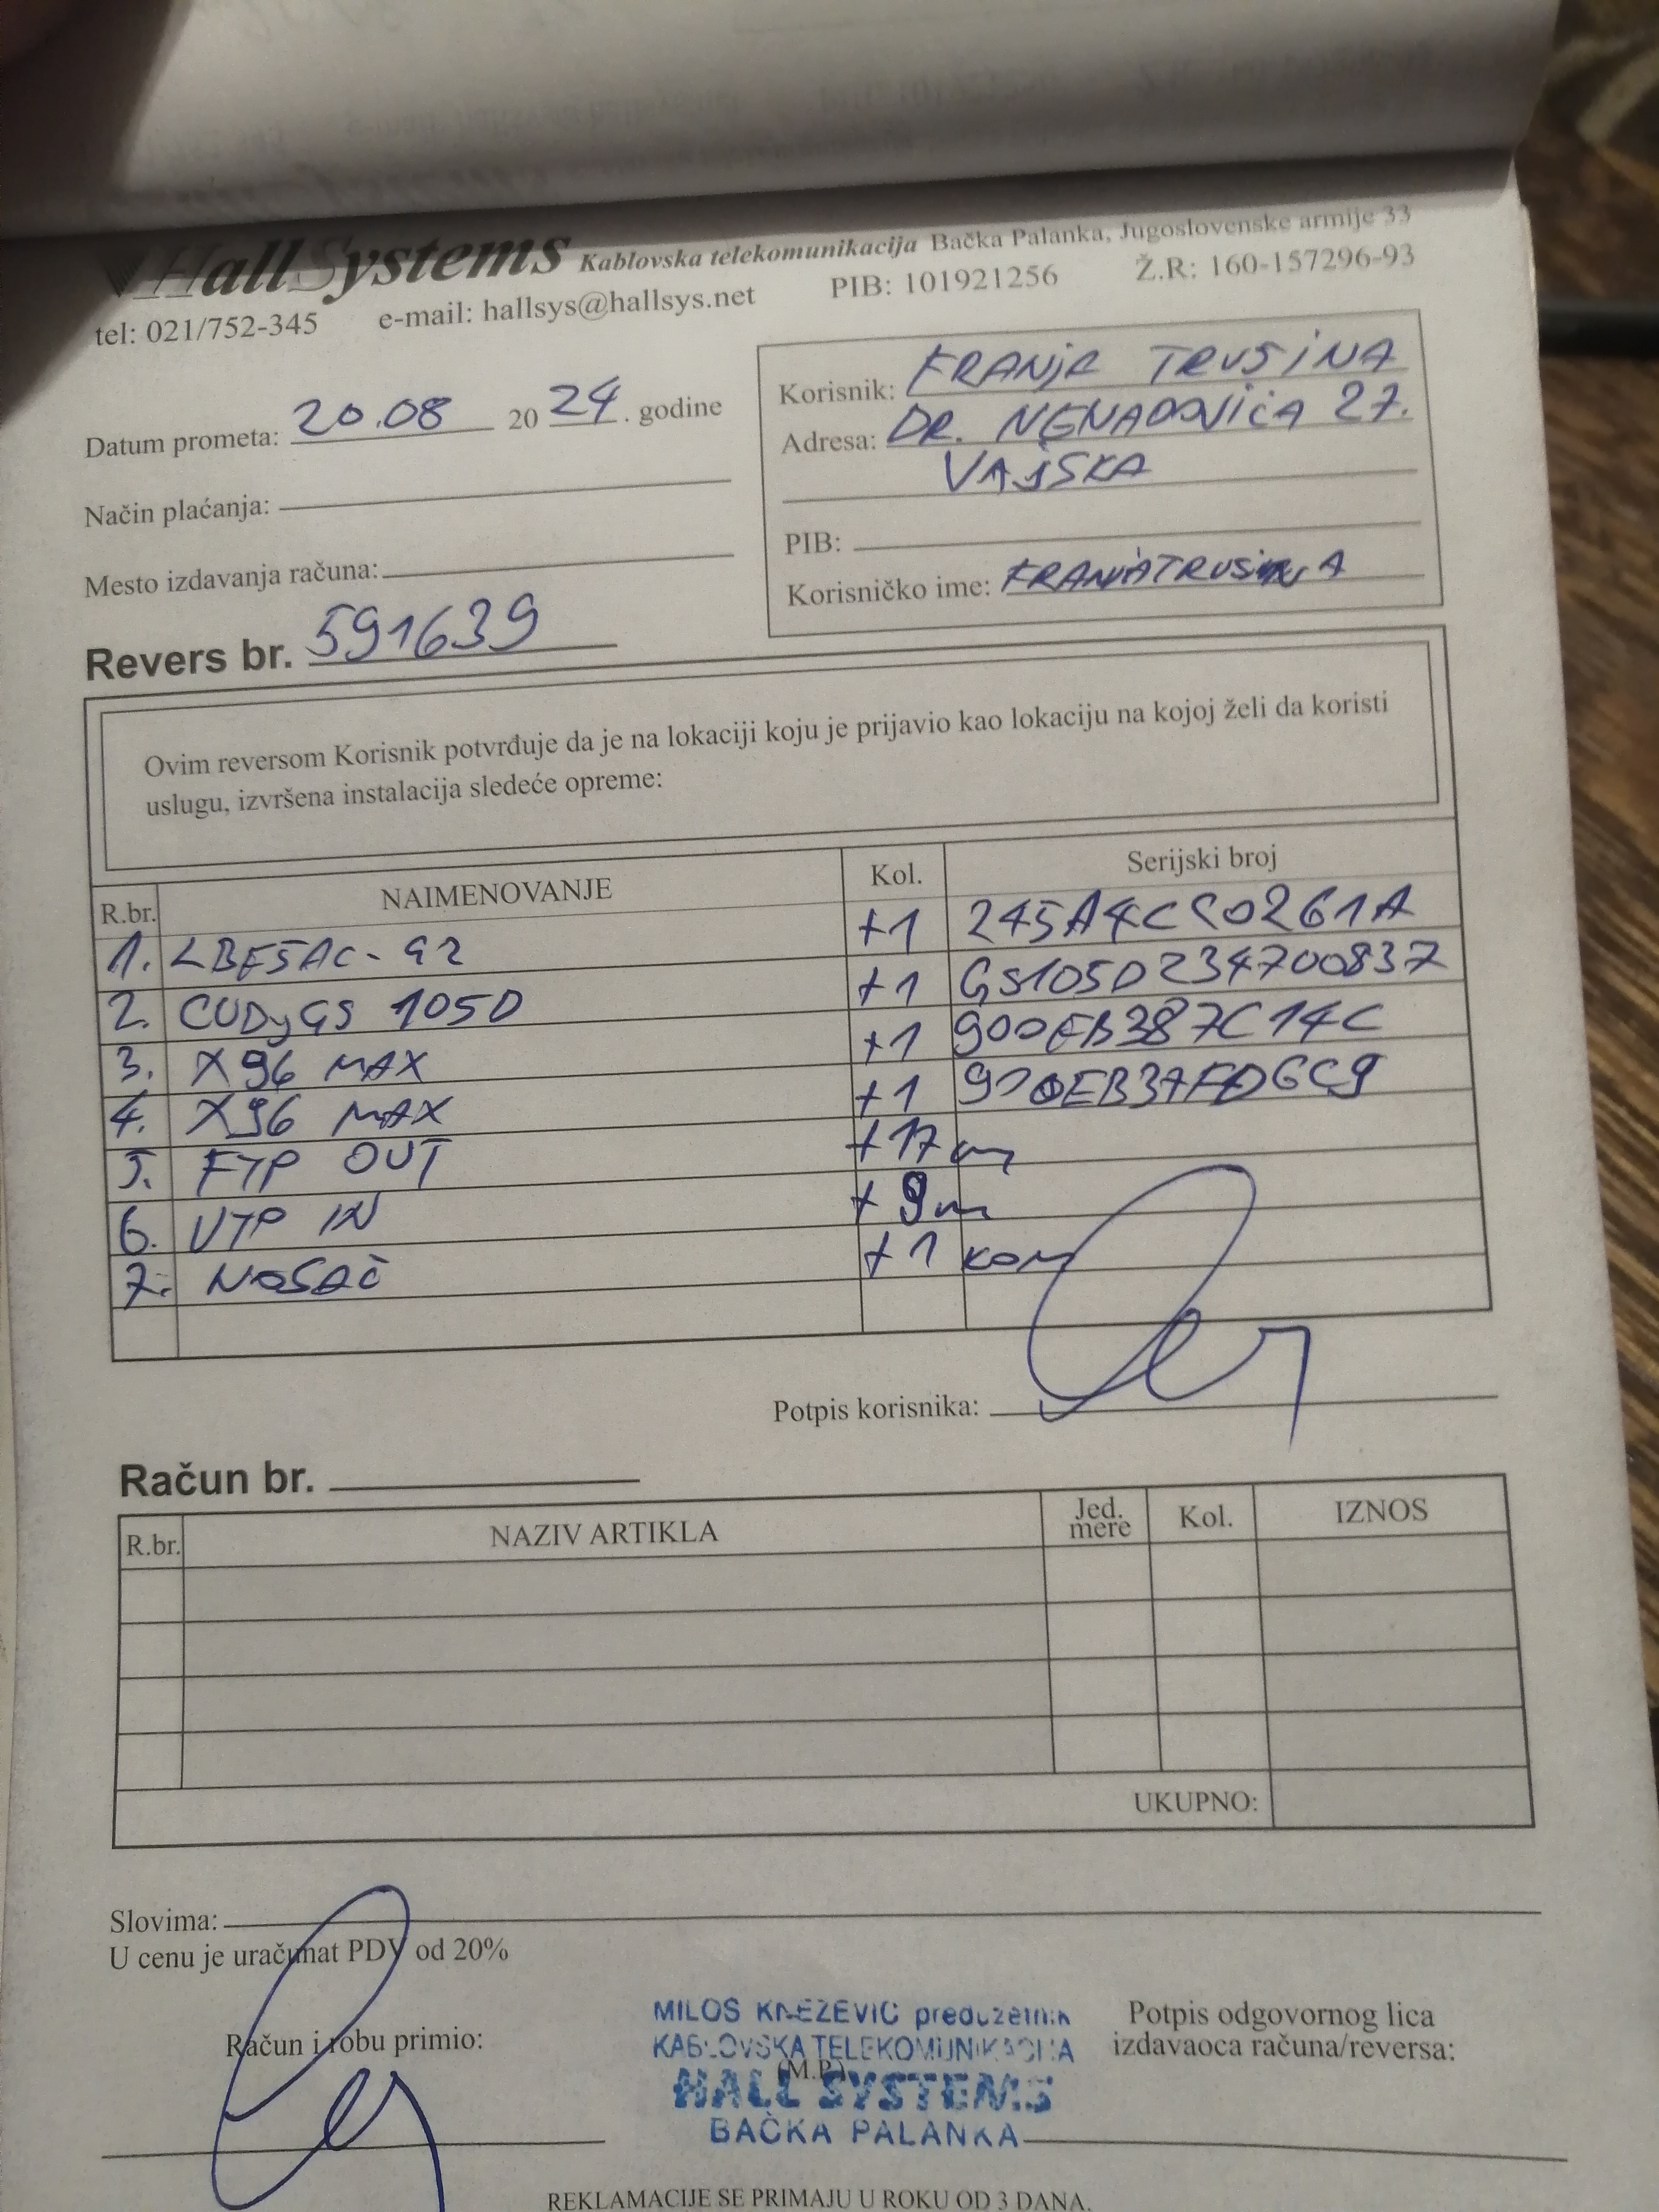 HallSystems Kablovska telekomunikacija Bačka Palanka, Jugoslovenske armije 33
tel: 021/752-345 e-mail: hallsys@hallsys.net PIB: 101921256 Ž.R: 160-157296-93
Datum prometa: 20.08 2024. godine
Način plaćanja:
Mesto izdavanja računa:
Korisnik: FRANJA TRUSINA
Adresa: DR. NENADOVIĆA 27.
VAJSKA
PIB:
Korisničko ime: FRANJATRUSINA
Revers br. 591639
Ovim reversom Korisnik potvrđuje da je na lokaciji koju je prijavio kao lokaciju na kojoj želi da koristi
uslugu, izvršena instalacija sledeće opreme:
R.br. NAIMENOVANJE Kol. Serijski broj
1. LBE5AC-G2 +1
2. CUDY GS 105D +1 GS105D234700837
3. X96 MAX +1 900EB387C14C
4. X96 MAX +1
5. FTP OUT +17m
6. UTP IN +9m
7. NOSAČ +1 KOM
Potpis korisnika:
Račun br.
R.br. NAZIV ARTIKLA Jed. mere Kol. IZNOS
UKUPNO:
Slovima:
U cenu je uračunat PDV od 20%
Račun i robu primio:
MILOS KNEZEVIC preduzetnik
KABLOVSKA TELEKOMUNIKACIJA
(M.P.)
HALL SYSTEMS
BAČKA PALANKA
Potpis odgovornog lica
izdavaoca računa/reversa:
REKLAMACIJE SE PRIMAJU U ROKU OD 3 DANA.